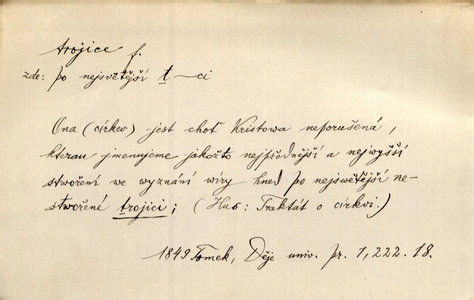 trojice f.
zde: po nejsvětější t—ci
Ona (církev) jest choť Kristowa neporušená,
kterau jmenujeme jakožto nejpřednější a nejwyšší
stwoření we wyznání wíry hned po nejswětější ne-
stwořené trojici; (Hus: Traktát o církvi.)
1849 Tomek, Děje univ. pr. 1, 222. 18.